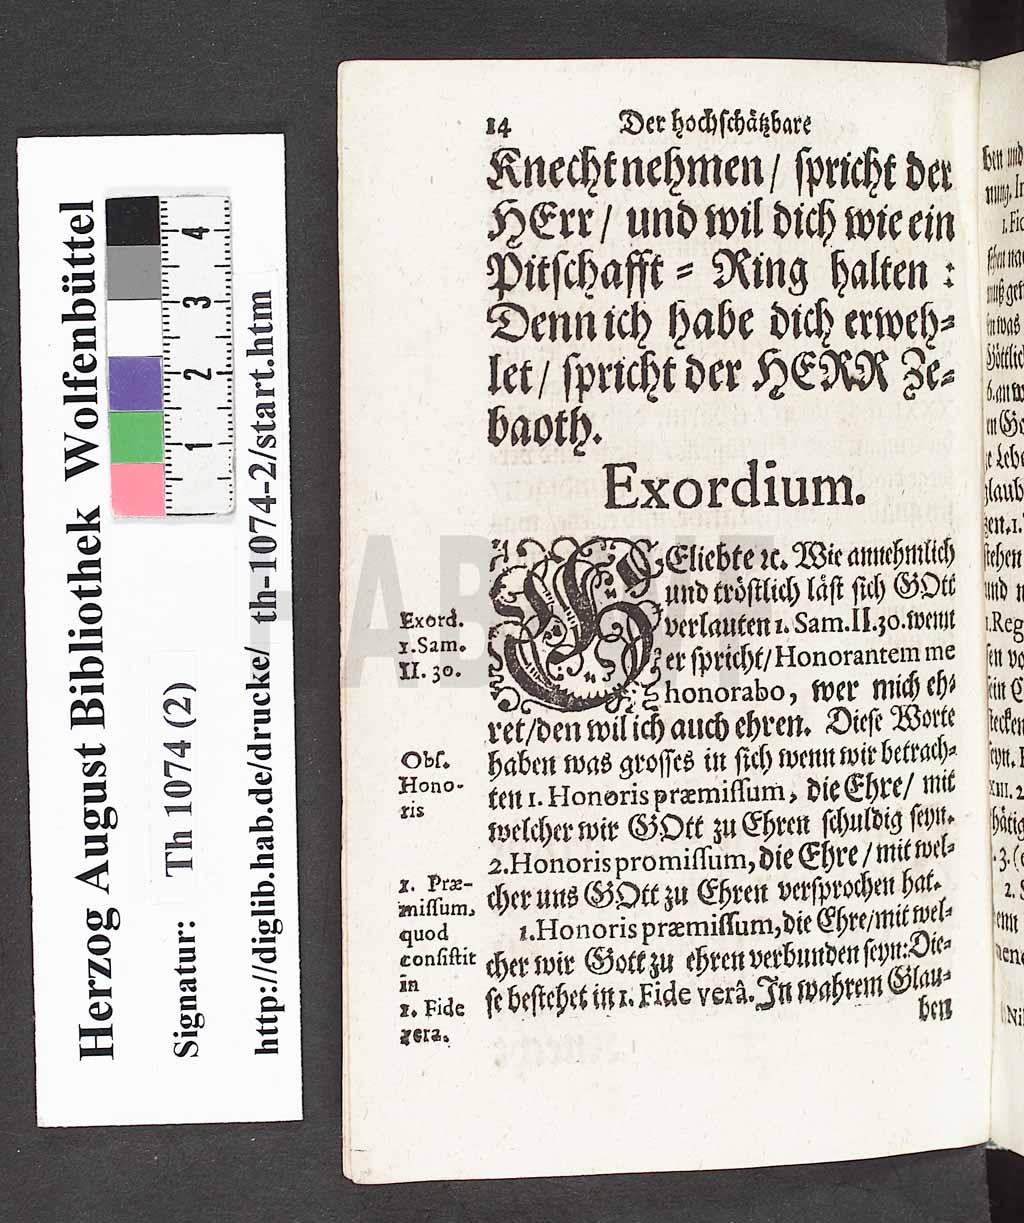 Herzog August Bibliothek Wolfenbüttel
Signatur: Th 1074 (2)
http://diglib.hab.de/drucke/ th-1074-2/start.htm
1 2 3 4
14 Der hochschätzbare
Knecht nehmen / spricht der
HErr / und wil dich wie ein
Pitschafft = Ring halten :
Denn ich habe dich erweh=
let / spricht der HERR Ze=
baoth.
Exordium.
GEliebte ꝛc. Wie annehmlich
und tröstlich läst sich GOtt
verlauten 1. Sam. II. 30. wenn
er spricht / Honorantem me
honorabo, wer mich eh=
ret / den wil ich auch ehren. Diese Worte
haben was grosses in sich wenn wir betrach=
ten 1. Honoris præmissum, die Ehre / mit
welcher wir GOtt zu Ehren schuldig seyn.
2. Honoris promissum, die Ehre / mit wel=
cher uns GOtt zu Ehren versprochen hat.
1. Honoris præmissum, die Ehre / mit wel=
cher wir Gott zu ehren verbunden seyn: Die=
se bestehet in 1. Fide verâ. In wahrem Glau=
ben
Exord.
1. Sam.
II. 30.
Obs.
Hono-
ris
1. Præ-
missum,
quod
consistit
in
1. Fide
vera.
HAB